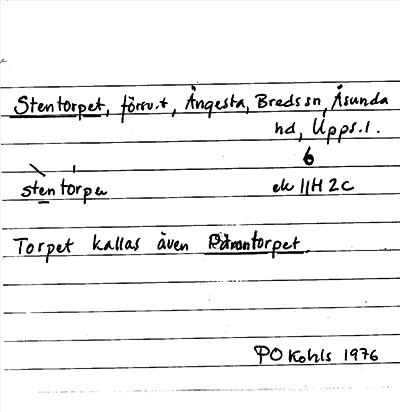 Stentorpet, försv.t, Ängesta, Breds sn, Åsunda
hd, Upps.l.
6
stentorpe ek 11H 2C
Torpet kallas även Pärontorpet.
PO Kohls 1976